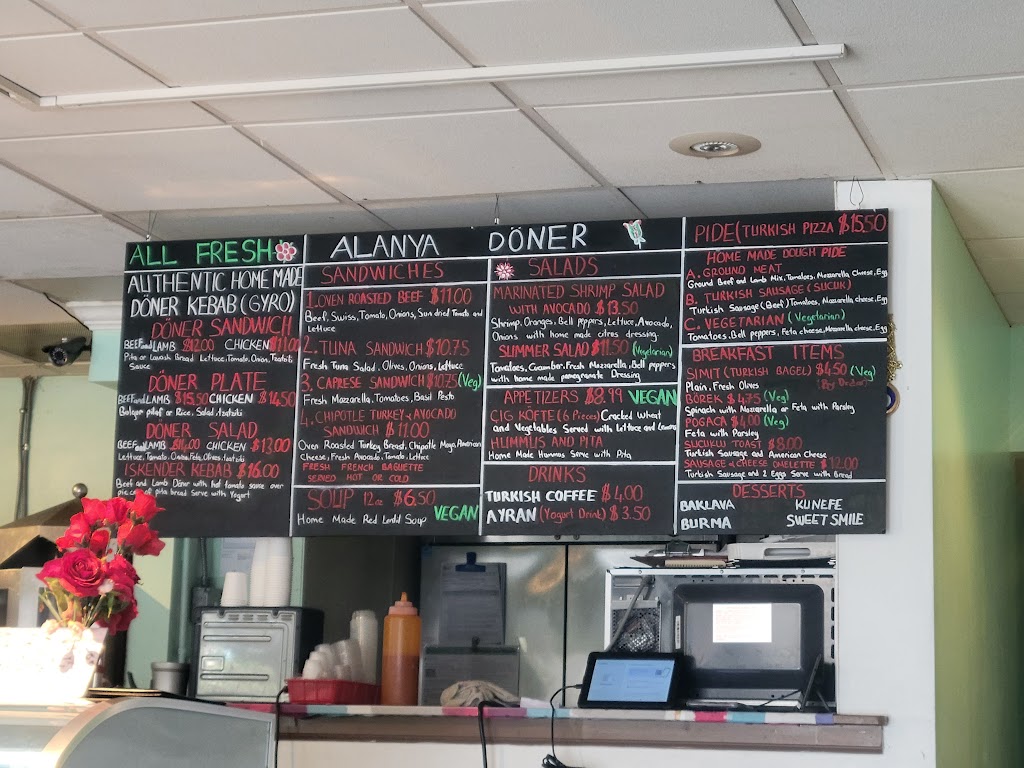 ALL FRESH
AUTHENTIC HOME MADE
DÖNER KEBAB (GYRO)
DÖNER SANDWICH
BEEF and LAMB $12.00 CHICKEN $11.00
Pita or Lavash Bread Lettuce, Tomato, Onion, Tzatsiti
Sauce
DÖNER PLATE
BEEF and LAMB $15.50 CHICKEN $14.50
Bulgur pilaf or Rice, Salad, tzatsiki
DÖNER SALAD
BEEF and LAMB $14.00 CHICKEN $13.00
Lettuce, Tomato, Onions, Feta, Olives, tzatsiki
ISKENDER KEBAB $16.00
Beef and Lamb Döner with hot tomato sauce over
pieces of pita bread Serve with Yogurt
ALANYA DÖNER
SANDWICHES
1. OVEN ROASTED BEEF $11.00
Beef, Swiss, Tomato, Onions, Sun dried Tomato and
Lettuce
2. TUNA SANDWICH $10.75
Fresh Tuna Salad, Olives, Onions, Lettuce
3. CAPRESE SANDWICH $10.75 (Veg)
Fresh Mozzarella, Tomatoes, Basil Pesto
4. CHIPOTLE TURKEY & AVOCADO
SANDWICH $11.00
Oven Roasted Turkey Breast, Chipotle Mayo, American
Cheese, Fresh Avocado, Tomato, Lettuce
FRESH FRENCH BAGUETTE
SERVED HOT OR COLD
SOUP 12oz $6.50
Home Made Red Lentil Soup VEGAN
SALADS
MARINATED SHRIMP SALAD
WITH AVOCADO $13.50
Shrimp, Oranges, Bell peppers, Lettuce, Avocado,
Onions with home made citres dressing
SUMMER SALAD $11.50 (Vegetarian)
Tomatoes, Cucumber, Fresh Mozzarella, Bell peppers
with home made pomegranate Dressing
APPETIZERS $8.99 VEGAN
CIG KOFTE (6 Pieces) Cracked Wheat
and Vegetables Served with Lettuce and Lemons
HUMMUS AND PITA
Home Made Hummus Serve with Pita
DRINKS
TURKISH COFFEE $4.00
AYRAN (Yogurt Drink) $3.50
PIDE (TURKISH PIZZA $15.50
HOME MADE DOUGH PIDE
A. GROUND MEAT
Ground Beef and Lamb Mix, Tomatoes, Mozzarella Cheese, Egg
B. TURKISH SAUSAGE (SUCUK)
Turkish Sausage (Beef) Tomatoes, Mozzarella cheese, Egg
C. VEGETARIAN (Vegetarian)
Tomatoes, Bell peppers, Feta cheese, Mozzarella cheese, Egg
BREAKFAST ITEMS
SIMIT (TURKISH BAGEL) $4.50 (Veg)
Plain, Fresh Olives (By Order)
BÖREK $4.75 (Veg)
Spinach with Mozzarella or Feta with Parsley
POGACA $4.00 (Veg)
Feta with Parsley
SUCUKLU TOAST $8.00
Turkish Sausage and American Cheese
SAUSAGE & CHEESE OMELETTE $12.00
Turkish Sausage and 2 Eggs Serve with Bread
DESSERTS
BAKLAVA KUNEFE
BURMA SWEET SMILE